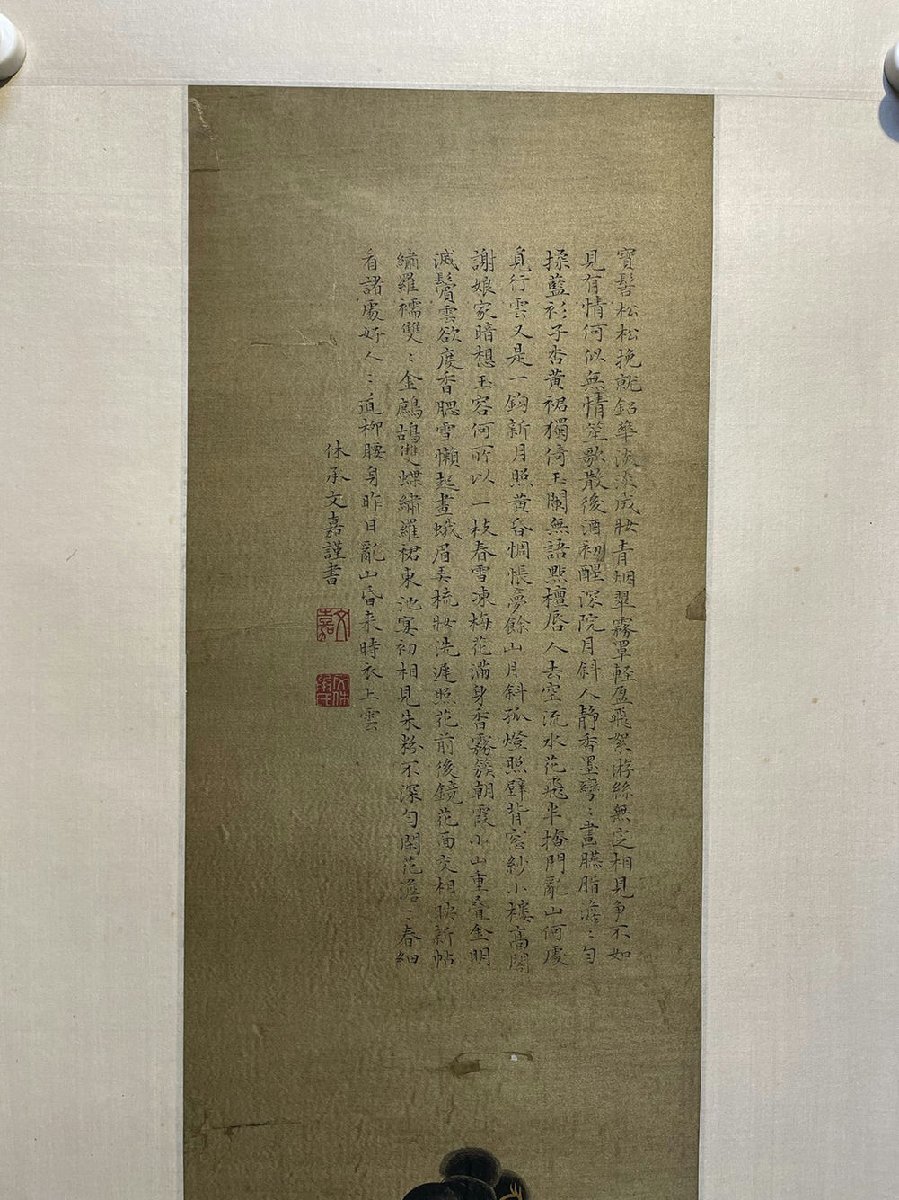 寳髻松松挽就鉛華淡淡成妝青烟翠霧罩輕盈飛絮游絲無定相見爭不如
見有情何似無情笙歌散後酒初醒深院月斜人静香墨彎〻畫臙脂澹〻勻
揉藍衫子杏黄裙獨倚玉闌無語㸃檀唇人去空流水花飛半掩門亂山何處
覓行雲又是一鈎新月照黄昏惆悵夢餘山月斜孤燈照壁背窓紗小樓高閣
謝娘家暗想玉容何所以一枝春雪凍梅花滿身香霧簇朝霞小山重叠金明
滅鬢雲欲度香腮雪懶起畫蛾眉弄梳妝洗遲照花前後鏡花面交相映新帖
繡羅襦雙〻金鷓鴣雙蝶繡羅裙東池宴初相見朱粉不深勻閑花澹〻春細
看諸處好人〻道柳腰身昨日亂山昏来時衣上雲
休承文嘉謹書
文嘉